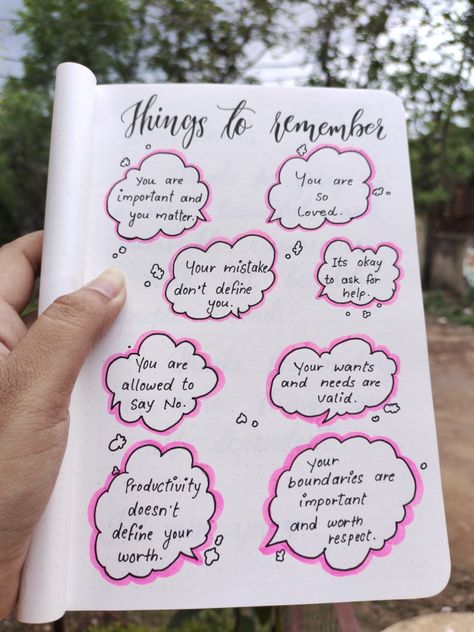 Things to remember
You are
important and
you matter.
You are
so
Loved.
Your mistake
don't define
you.
Its okay
to ask for
help.
You are
allowed to
say No.
Your wants
and needs are
valid.
Productivity
doesn't
define your
worth.
Your
boundaries are
important
and worth
respect.